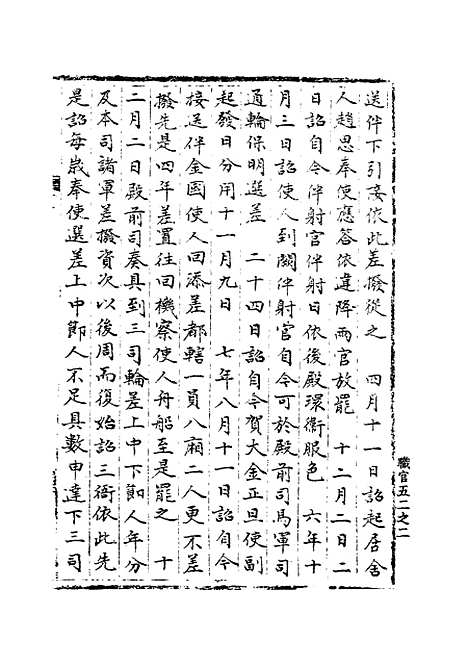 送伴下引接依此差撥從之　四月十一日詔起居舍
人趙思奉使應答依違降兩官放罷　十二月二日二
日詔自今伴射官伴射日依後殿環衛服色　六年十
月三日詔使人到闕伴射官自今可於殿前司馬軍司
通輪保明選差　二十四日詔自今賀大金正旦使副
起發日分用十一月九日　七年八月十一日詔自今
接送伴金國使人回添差都轄一員八廂二人更不差
撥先是四年差置往回機察使人舟船至是罷之　十
二月二日殿前司奏具到三司輪差上中下節人年分
及本司諸軍差撥資次以後周而復始詔三衙依此先
是詔每歲奉使選差上中節人不足具數申達下三司
職官五二之二